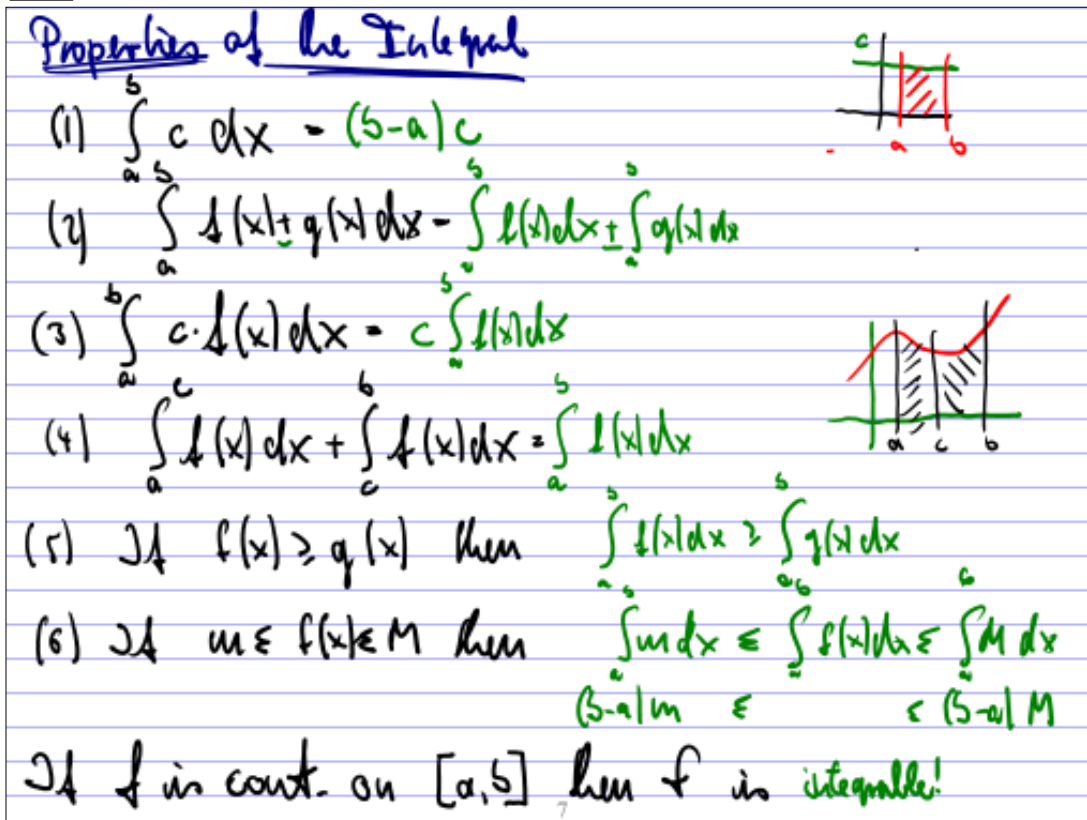 Properties of the Integral
c
(1) ∫_a^b c dx = (b-a) c
a b
(2) ∫_a^b f(x) ± g(x) dx = ∫_a^b f(x) dx ± ∫_a^b g(x) dx
(3) ∫_a^b c·f(x) dx = c ∫_a^b f(x) dx
(4) ∫_a^c f(x) dx + ∫_c^b f(x) dx = ∫_a^b f(x) dx
a c b
(5) If f(x) ≥ g(x) then ∫_a^b f(x) dx ≥ ∫_a^b g(x) dx
(6) If m ≤ f(x) ≤ M then ∫_a^b m dx ≤ ∫_a^b f(x) dx ≤ ∫_a^b M dx
(b-a) m ≤ ≤ (b-a) M
If f is cont. on [a,b] then f is integrable!
7